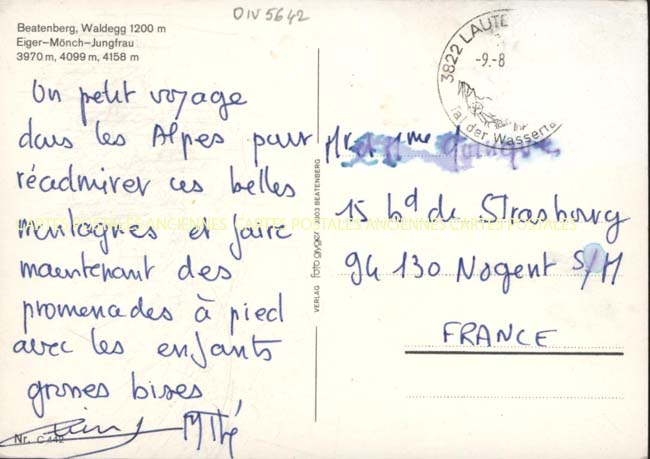 DIV 5642
Beatenberg, Waldegg 1200 m
Eiger-Mönch-Jungfrau
3970 m, 4099 m, 4158 m
Un petit voyage
dans les Alpes pour
réadmirer ces belles
montagnes et faire
maintenant des
promenades à pied
avec les enfants
grosses bises
MThé
Nr. C 442
VERLAG foto gyger 3803 BEATENBERG
CARTES POSTALES ANCIENNES CARTES POSTALES ANCIENNES CARTES POSTALES
3822 LAUTE
-9.-8
Tal der Wasserf
Mr et Mme
15 bd de Strasbourg
94 130 Nogent S/M
FRANCE